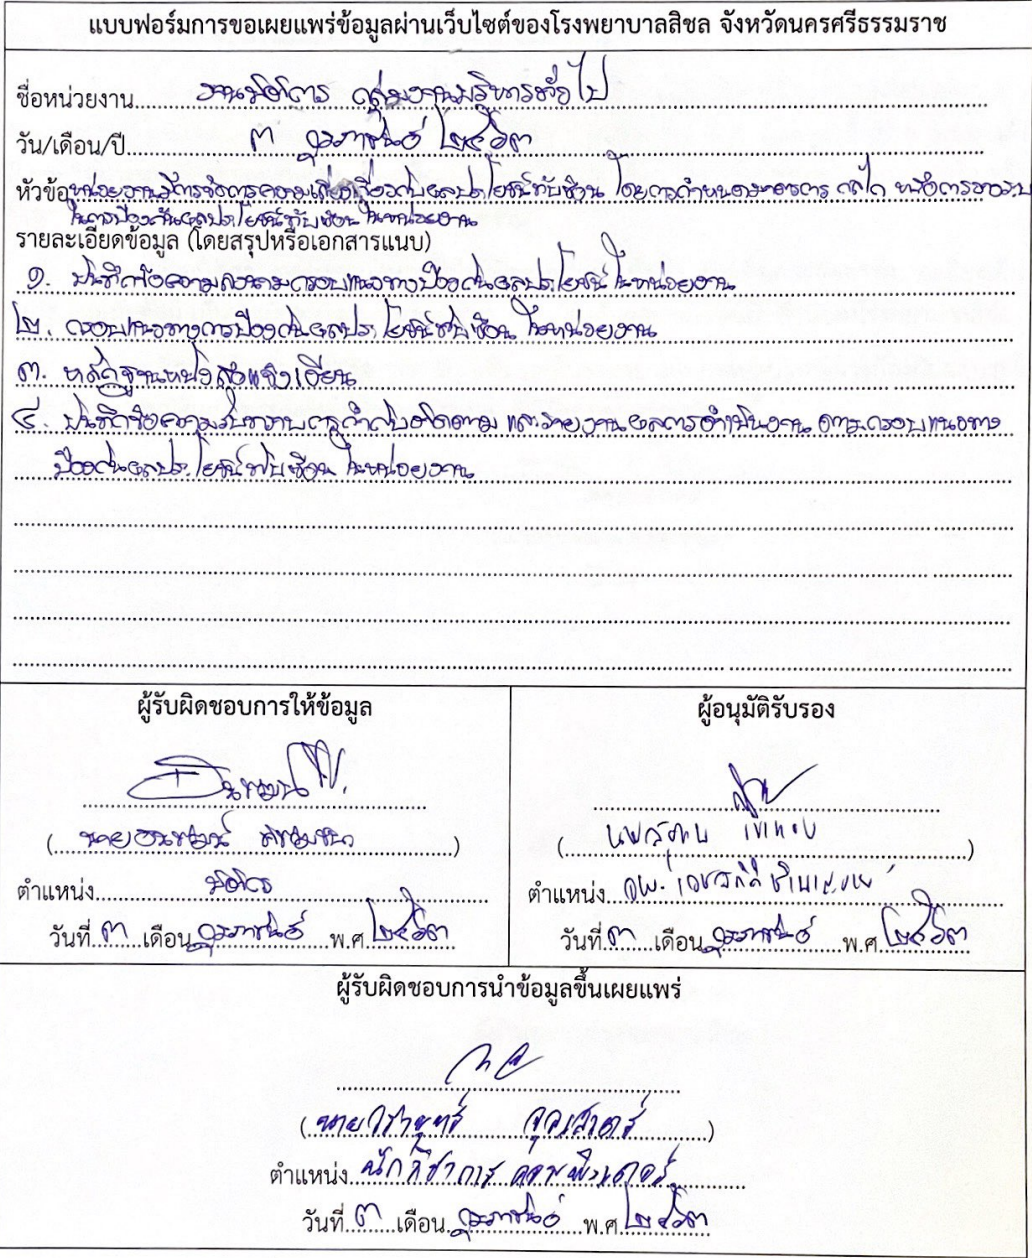 แบบฟอร์มการขอเผยแพร่ข้อมูลผ่านเว็บไซต์ของโรงพยาบาลสิชล จังหวัดนครศรีธรรมราช
ชื่อหน่วยงาน งานนิติการ กลุ่มงานบริหารทั่วไป
วัน/เดือน/ปี ๓ กุมภาพันธ์ ๒๕๖๓
หัวข้อ หน่วยงานมีการจัดการความเสี่ยงเกี่ยวกับผลประโยชน์ทับซ้อน โดยการกำหนดมาตรการ กลไก หรือการวางระบบ
ในการป้องกันผลประโยชน์ทับซ้อนในหน่วยงาน
รายละเอียดข้อมูล (โดยสรุปหรือเอกสารแนบ)
๑. บันทึกข้อความลงนามกรอบแนวทางป้องกันผลประโยชน์ในหน่วยงาน
๒. กรอบแนวทางการป้องกันผลประโยชน์ทับซ้อนในหน่วยงาน
๓. หลักฐานหนังสือแจ้งเวียน
๔. บันทึกข้อความรับทราบการกำกับติดตาม และรายงานผลการดำเนินงาน ตามกรอบแนวทาง
ป้องกันผลประโยชน์ทับซ้อนในหน่วยงาน
ผู้รับผิดชอบการให้ข้อมูล
(นายธนพัฒน์)
ตำแหน่ง นิติกร
วันที่ ๓ เดือน กุมภาพันธ์ พ.ศ ๒๕๖๓
ผู้อนุมัติรับรอง
ตำแหน่ง
วันที่ ๓ เดือน กุมภาพันธ์ พ.ศ ๒๕๖๓
ผู้รับผิดชอบการนำข้อมูลขึ้นเผยแพร่
(นายวรายุทธ์)
ตำแหน่ง นักวิชาการคอมพิวเตอร์
วันที่ ๓ เดือน กุมภาพันธ์ พ.ศ ๒๕๖๓